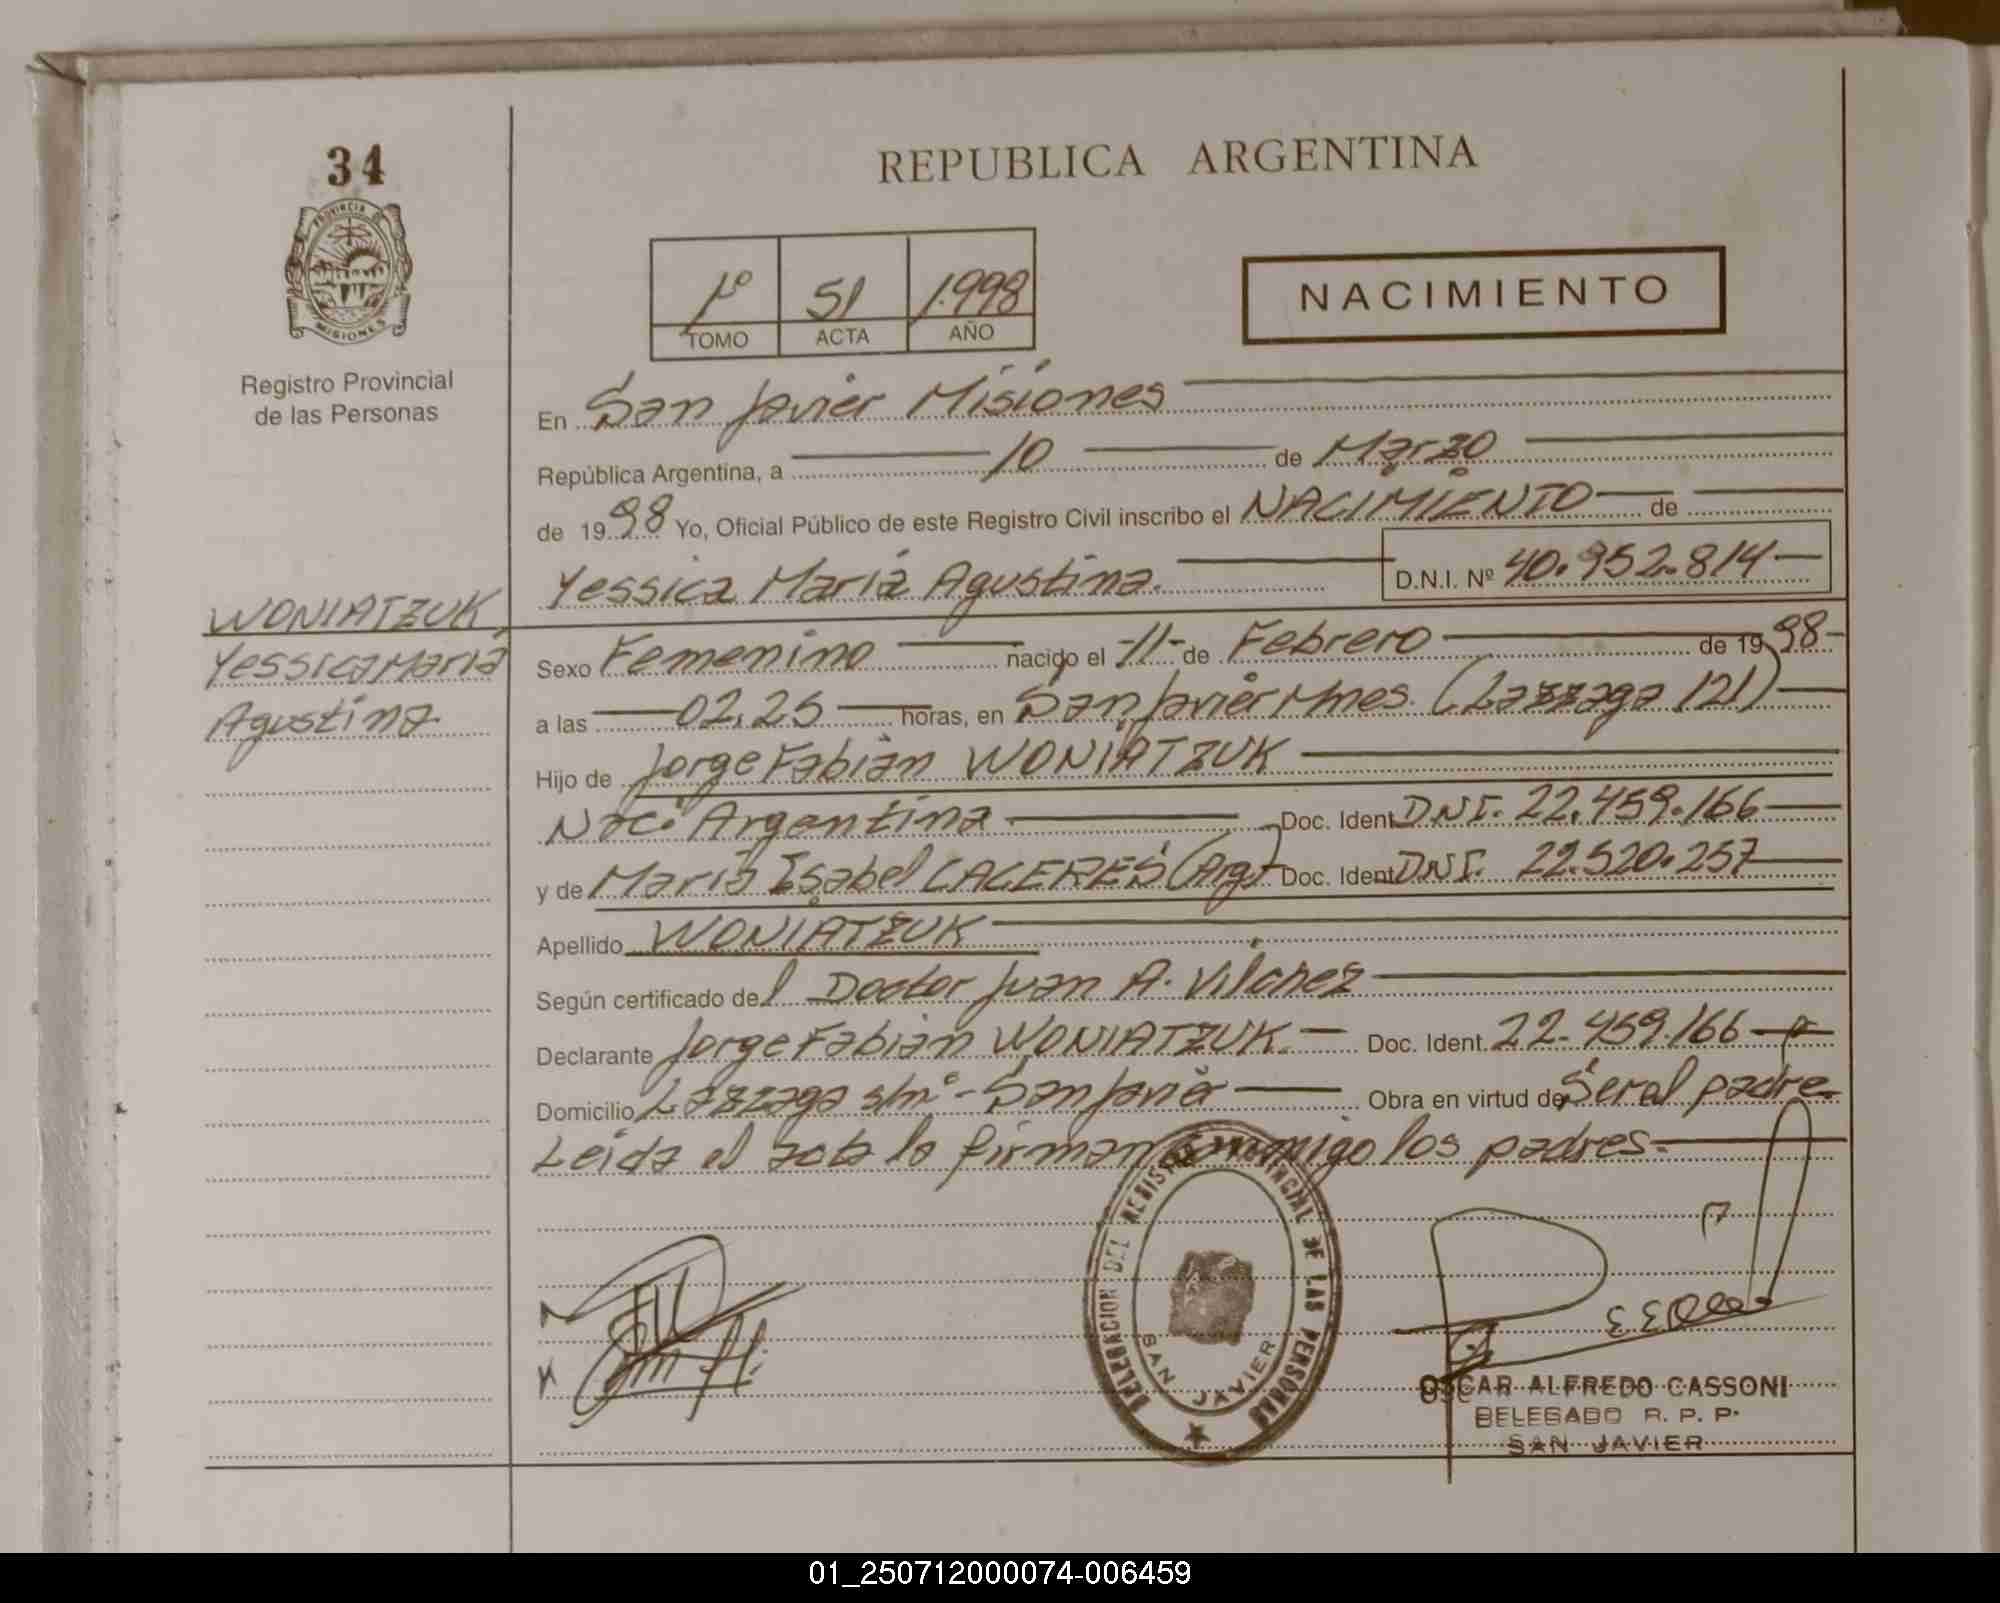 34
PROVINCIA DE
MISIONES
Registro Provincial
de las Personas
WONIATZUK,
Yessica Maria
Agustina
REPUBLICA ARGENTINA
1º 51 1.998
TOMO ACTA AÑO
NACIMIENTO
En San Javier Misiones
República Argentina, a 10 de Marzo
de 1998 Yo, Oficial Público de este Registro Civil inscribo el NACIMIENTO de
Yessica María Agustina. D.N.I. Nº 40.952.814
Sexo Femenino nacido el -11- de Febrero de 1998-
a las 02,25 horas, en San Javier Mnes. (Lazzaga 121)
Hijo de Jorge Fabián WONIATZUK
Nac. Argentina Doc. Ident. DNI. 22.459.166
y de María Isabel CACERES (Arg) Doc. Ident. DNI. 22.520.257
Apellido WONIATZUK
Según certificado del Doctor Juan A. Vilchez
Declarante Jorge Fabián WONIATZUK.- Doc. Ident. 22.459.166
Domicilio Lazzaga s/nº- San Javier Obra en virtud de Ser el padre.
Leida el acta la firman conmigo los padres.-
DELEGACION DEL REGISTRO PROVINCIAL DE LAS PERSONAS
SAN JAVIER
OSCAR ALFREDO CASSONI
DELEGADO R. P. P.
SAN JAVIER
01_250712000074-006459